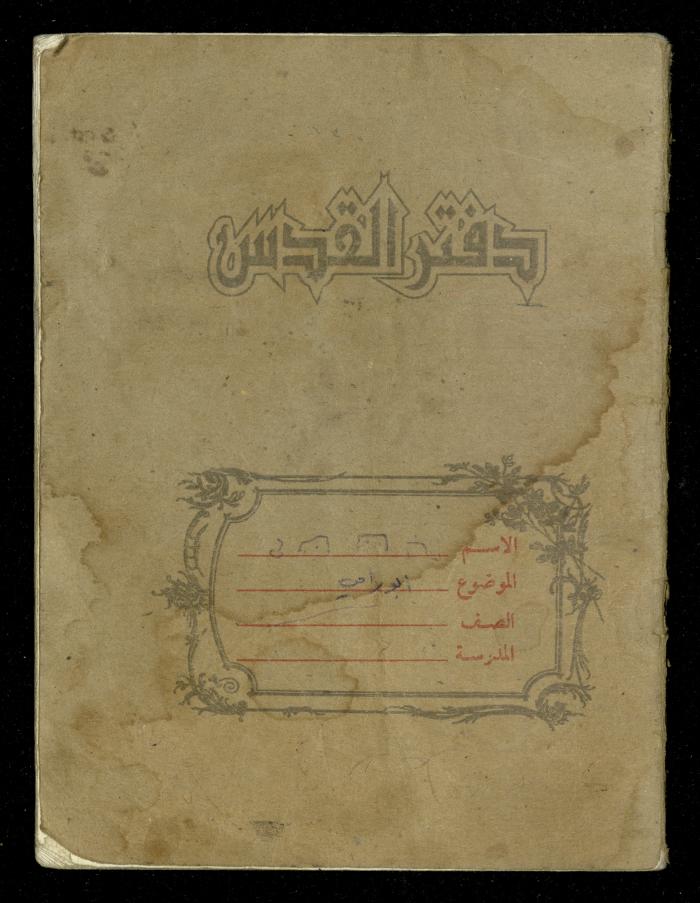 دفتر القدس
الاسم
الموضوع ابو رامي
الصف
المدرسة